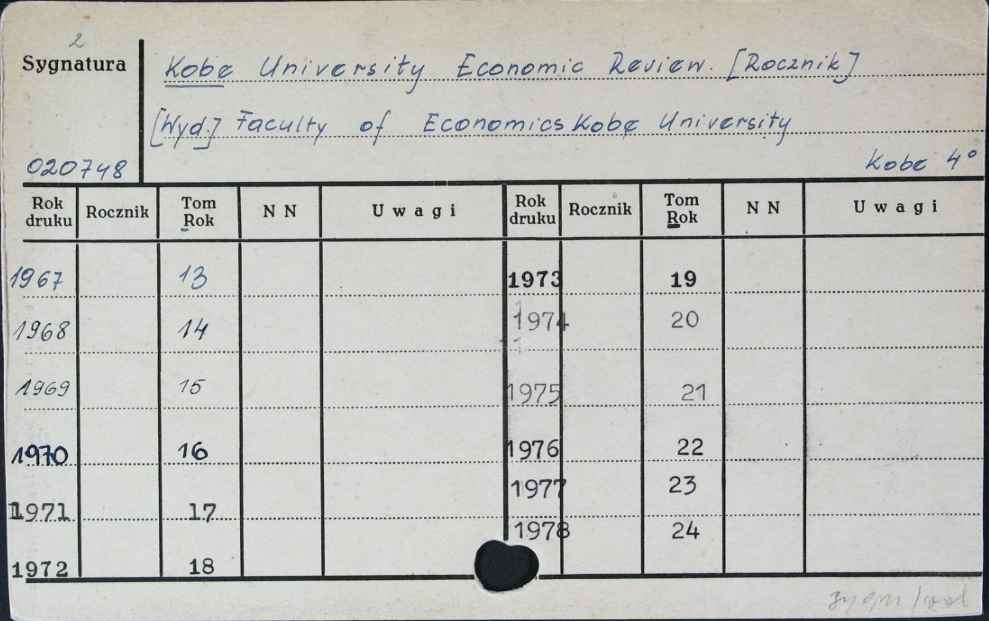 2
Sygnatura
Kobe University Economic Review. [Rocznik]
[Wyd.] Faculty of Economics Kobe University
020748
Kobe 4°
Rok druku Rocznik Tom Rok N N Uwagi Rok druku Rocznik Tom Rok N N Uwagi
1967 13 1973 19
1968 14 1974 20
1969 15 1975 21
1970 16 1976 22
1971 17 1977 23
1972 18 1978 24